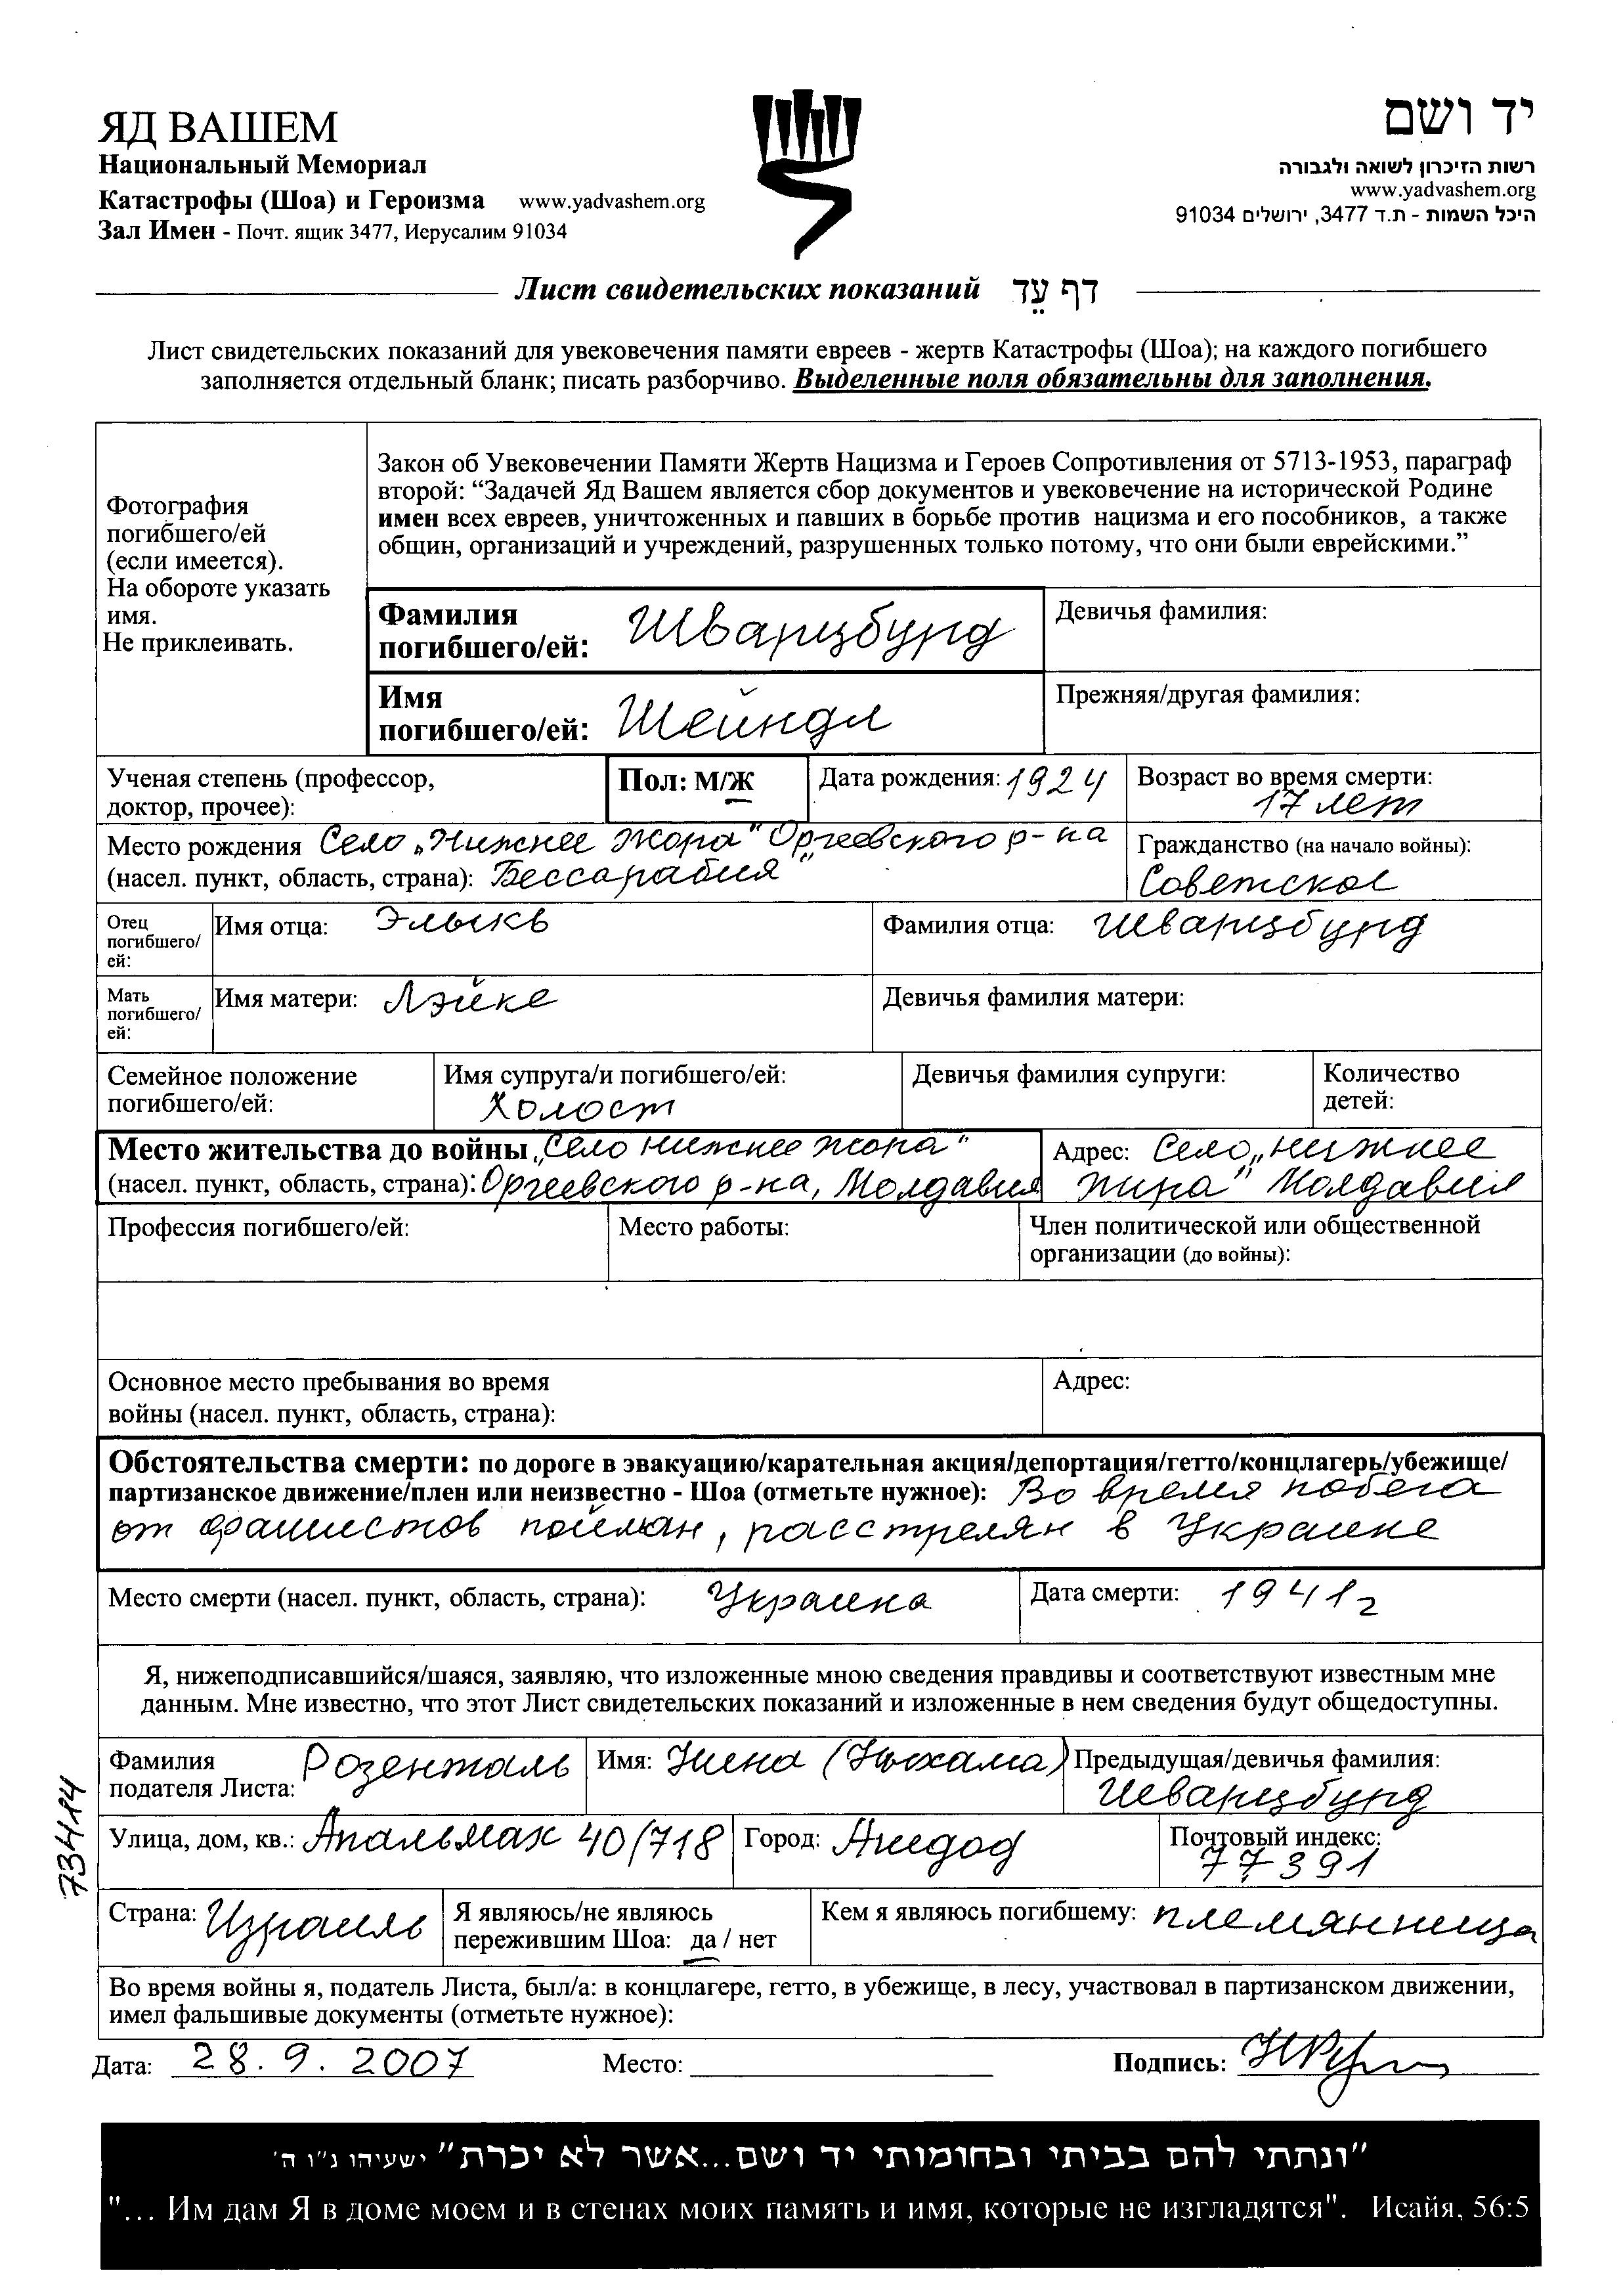 ЯД ВАШЕМ
Национальный Мемориал
Катастрофы (Шоа) и Героизма www.yadvashem.org
Зал Имен - Почт. ящик 3477, Иерусалим 91034
יד ושם
רשות הזיכרון לשואה ולגבורה
www.yadvashem.org
היכל השמות - ת.ד 3477, ירושלים 91034
Лист свидетельских показаний דף עֵד
Лист свидетельских показаний для увековечения памяти евреев - жертв Катастрофы (Шоа); на каждого погибшего
заполняется отдельный бланк; писать разборчиво. Выделенные поля обязательны для заполнения.
Фотография
погибшего/ей
(если имеется).
На обороте указать
имя.
Не приклеивать.
Закон об Увековечении Памяти Жертв Нацизма и Героев Сопротивления от 5713-1953, параграф
второй: “Задачей Яд Вашем является сбор документов и увековечение на исторической Родине
имен всех евреев, уничтоженных и павших в борьбе против нацизма и его пособников, а также
общин, организаций и учреждений, разрушенных только потому, что они были еврейскими.”
Фамилия
погибшего/ей: Шварцбурд
Девичья фамилия:
Имя
погибшего/ей: Шейндл
Прежняя/другая фамилия:
Ученая степень (профессор,
доктор, прочее):
Пол: М/Ж
Дата рождения: 1924
Возраст во время смерти:
17 лет
Место рождения Село „Нижнее Жора" Оргеевского р-на
(насел. пункт, область, страна): Бессарабия"
Гражданство (на начало войны):
Советское
Отец
погибшего/
ей:
Имя отца: Элыкв
Фамилия отца: Шварцбурд
Мать
погибшего/
ей:
Имя матери: Лэйке
Девичья фамилия матери:
Семейное положение
погибшего/ей:
Имя супруга/и погибшего/ей:
Холост
Девичья фамилия супруги:
Количество
детей:
Место жительства до войны „Село Нижнее Жора"
(насел. пункт, область, страна): Оргеевского р-на, Молдавия
Адрес: Село „Нижнее
Жира" Молдавия
Профессия погибшего/ей:
Место работы:
Член политической или общественной
организации (до войны):
Основное место пребывания во время
войны (насел. пункт, область, страна):
Адрес:
Обстоятельства смерти: по дороге в эвакуацию/карательная акция/депортация/гетто/концлагерь/убежище/
партизанское движение/плен или неизвестно - Шоа (отметьте нужное): Во время побега
от фашистов пойман, расстрелян в Украине
Место смерти (насел. пункт, область, страна): Украина
Дата смерти: 1941г
Я, нижеподписавшийся/шаяся, заявляю, что изложенные мною сведения правдивы и соответствуют известным мне
данным. Мне известно, что этот Лист свидетельских показаний и изложенные в нем сведения будут общедоступны.
Фамилия
податeля Листа: Розенталь
Имя: Нина (Ныхама)
Предыдущая/девичья фамилия:
Шварцбурд
Улица, дом, кв.: Апальмах 40/718
Город: Ашдод
Почтовый индекс:
77391
Страна: Израиль
Я являюсь/не являюсь
пережившим Шоа: да / нет
Кем я являюсь погибшему: племянница
Во время войны я, податель Листа, был/а: в концлагере, гетто, в убежище, в лесу, участвовал в партизанском движении,
имел фальшивые документы (отметьте нужное):
Дата: 28.9.2007
Место:
Подпись:
73414
"ונתתי להם בביתי ובחומותי יד ושם...אשר לא יכרת" ישעיהו נ"ו ה'
"... Им дам Я в доме моем и в стенах моих память и имя, которые не изгладятся". Исайя, 56:5